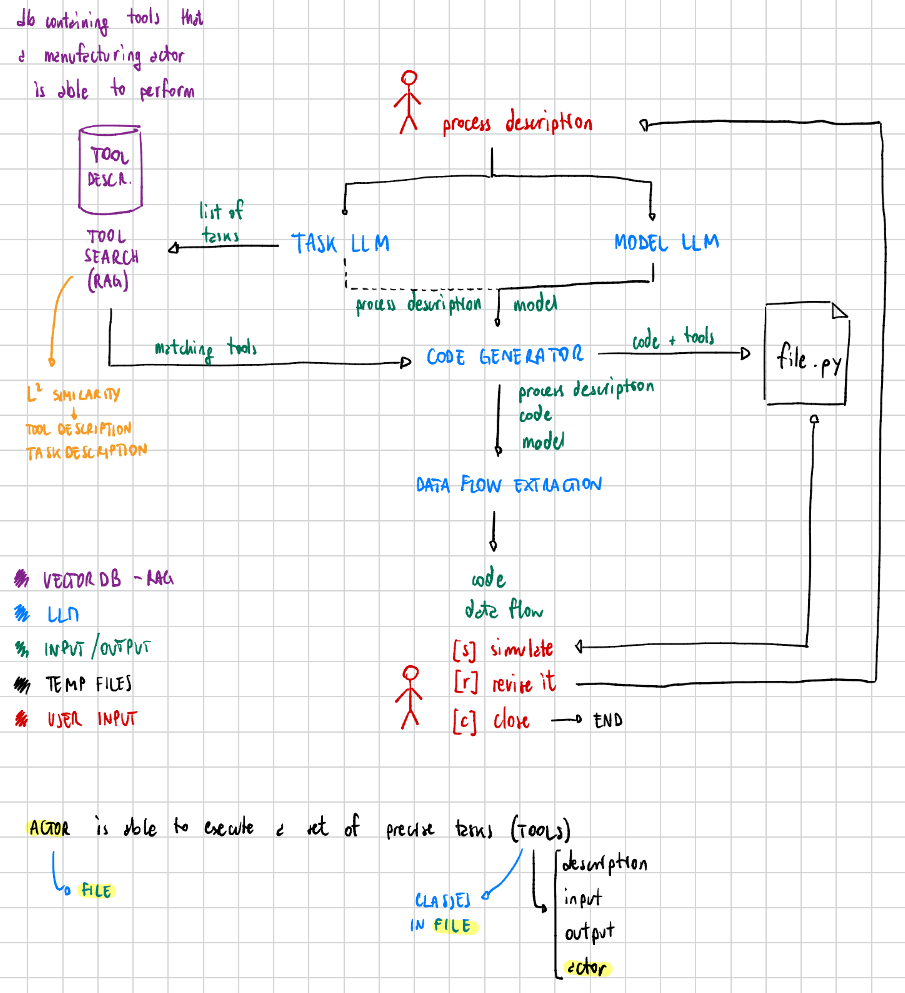 db containing tools that
a manufacturing actor
is able to perform
process description
TOOL
DESCR.
list of
tasks
TOOL
SEARCH
(RAG)
TASK LLM
MODEL LLM
process description
model
matching tools
CODE GENERATOR
code + tools
file.py
L² SIMILARITY
TOOL DESCRIPTION
TASK DESCRIPTION
process description
code
model
DATA FLOW EXTRACTION
code
data flow
[s] simulate
[r] revise it
[c] close
END
VECTOR DB - RAG
LLM
INPUT/OUTPUT
TEMP FILES
USER INPUT
ACTOR is able to execute a set of precise tasks (TOOLS)
FILE
CLASSES
IN FILE
description
input
output
actor